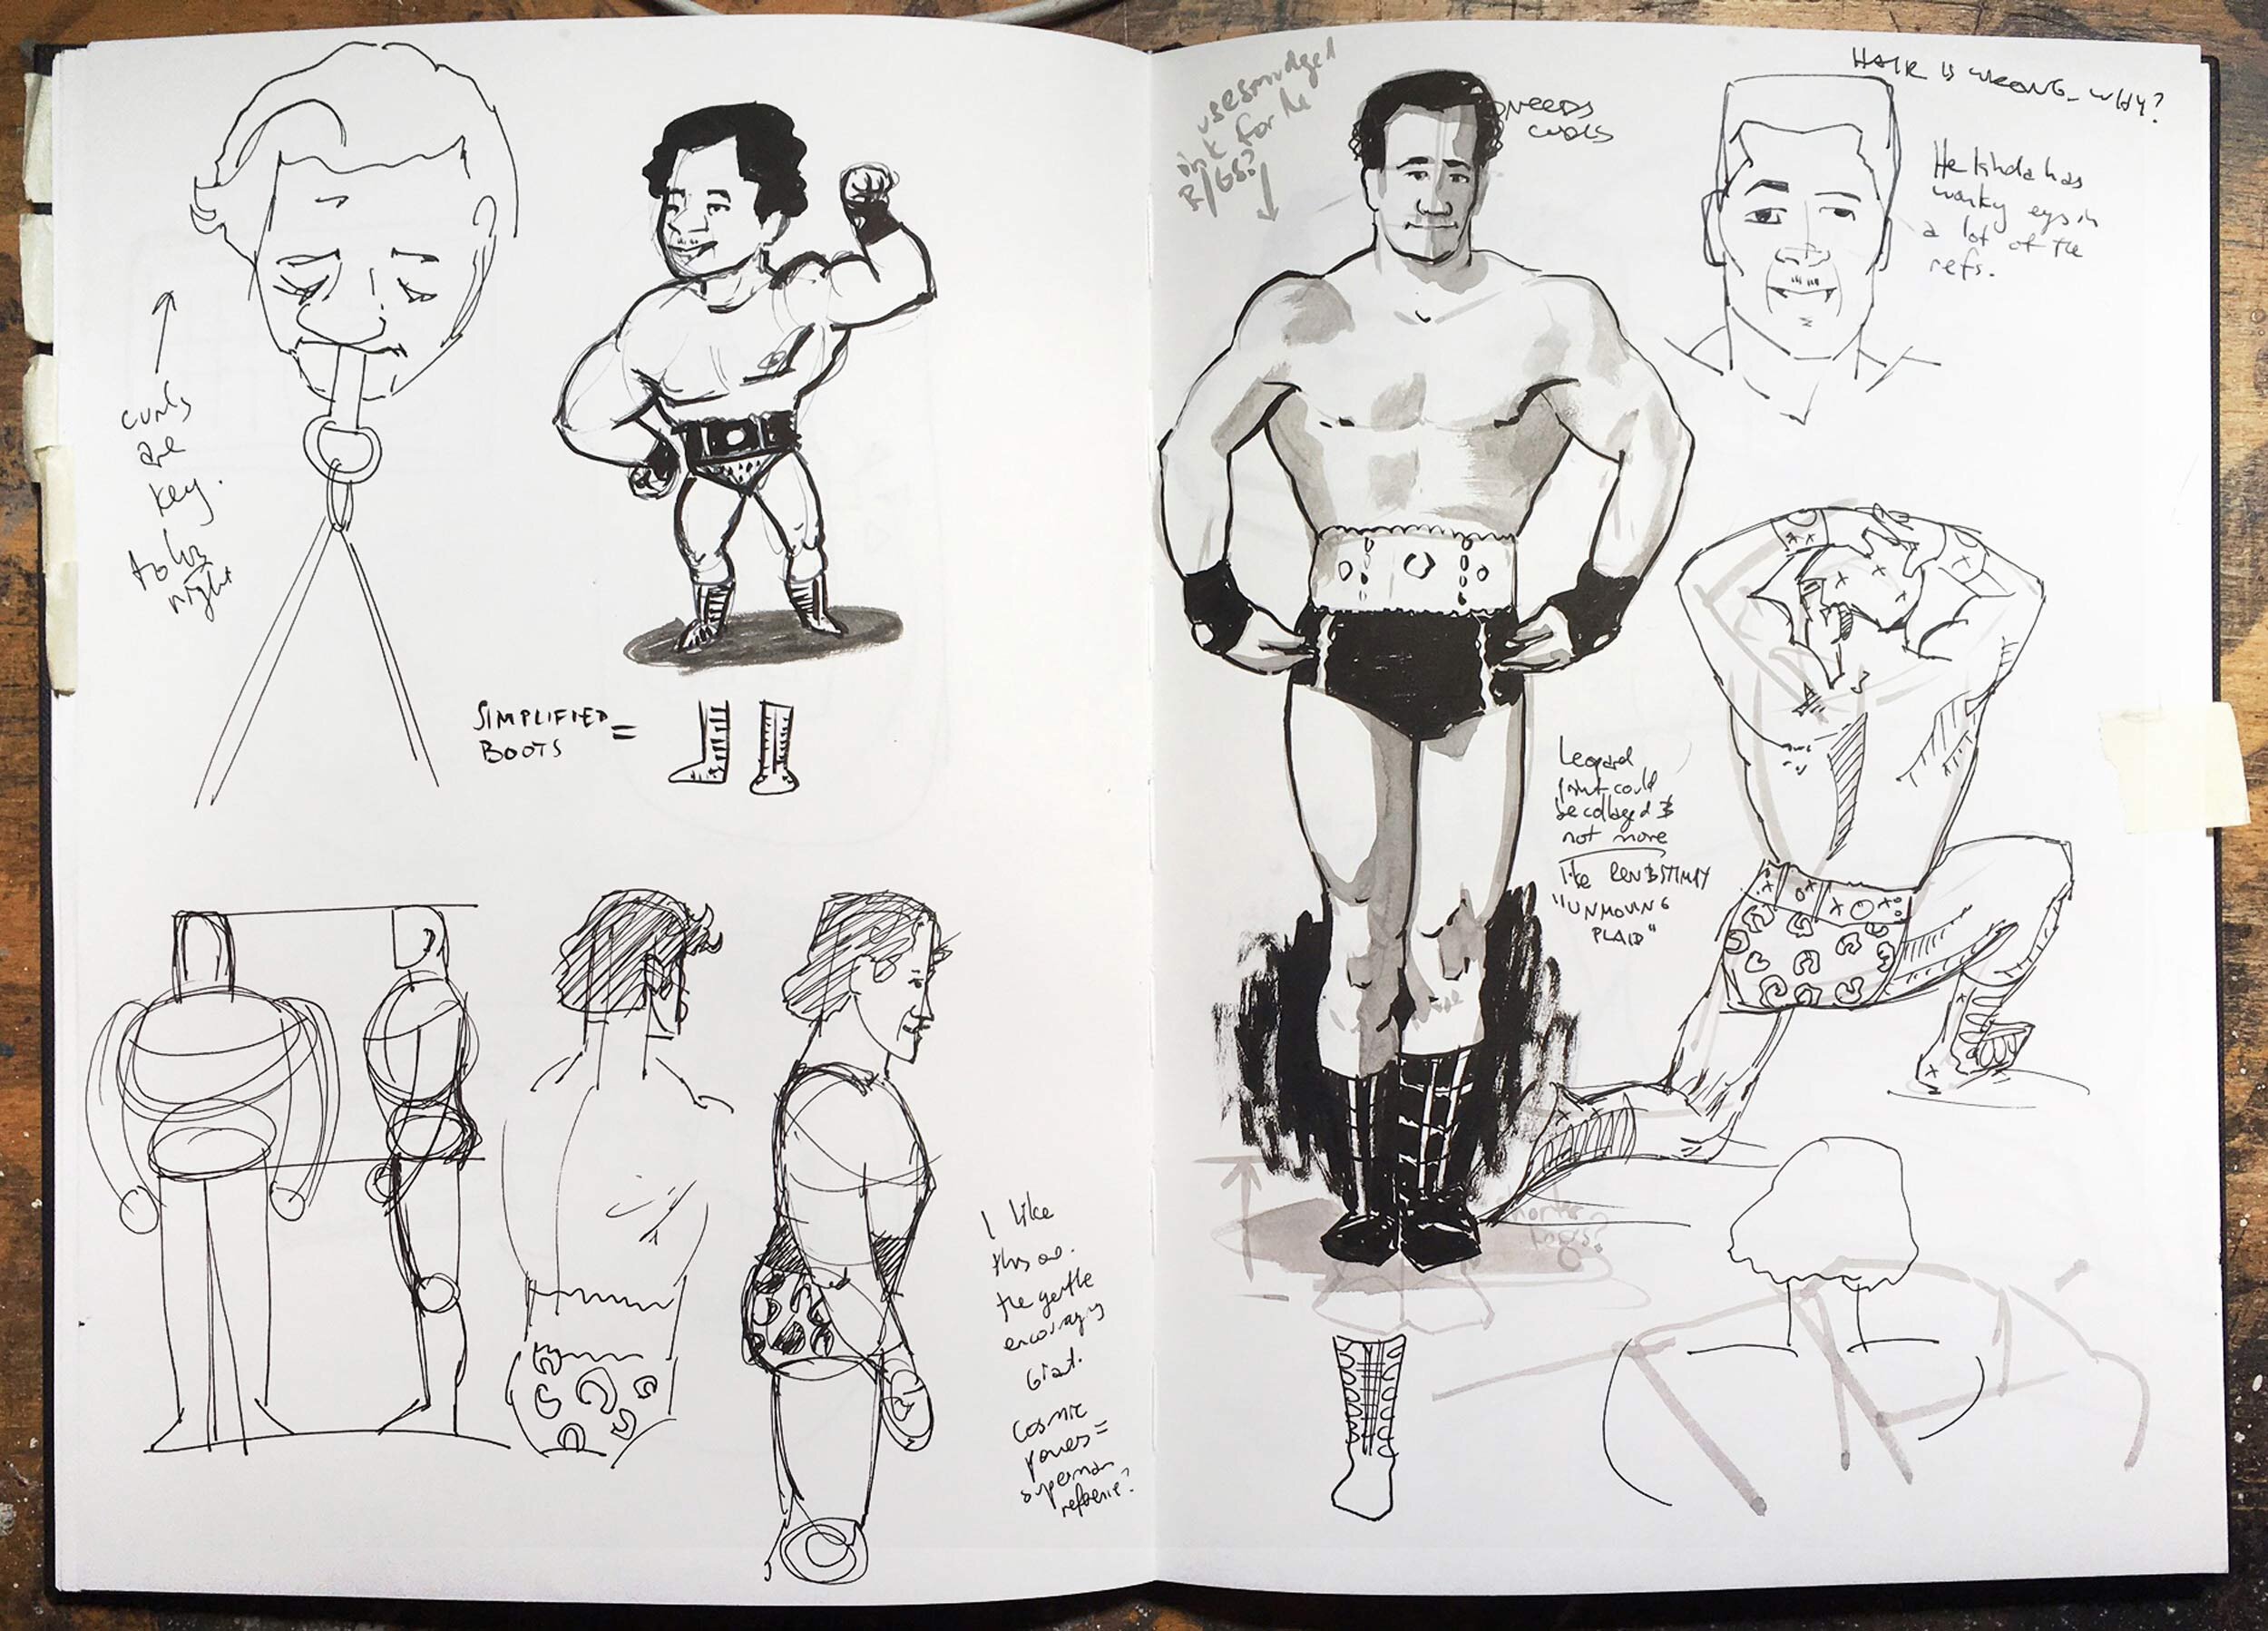 curls
are
key.
to his
right
SIMPLIFIED =
BOOTS
I like
this one.
the gentle
encouraging
Giant.
Cosmic
powers =
superman
reference?
use smudged
ink for the
NEEDS
curls
HAIR IS WRONG. WHY?
He kinda has
wonky eyes in
a lot of the
refs.
Leopard
print could
be collaged &
not move
like REN & STIMPY
"UNMOVING
PLAID"
shorter